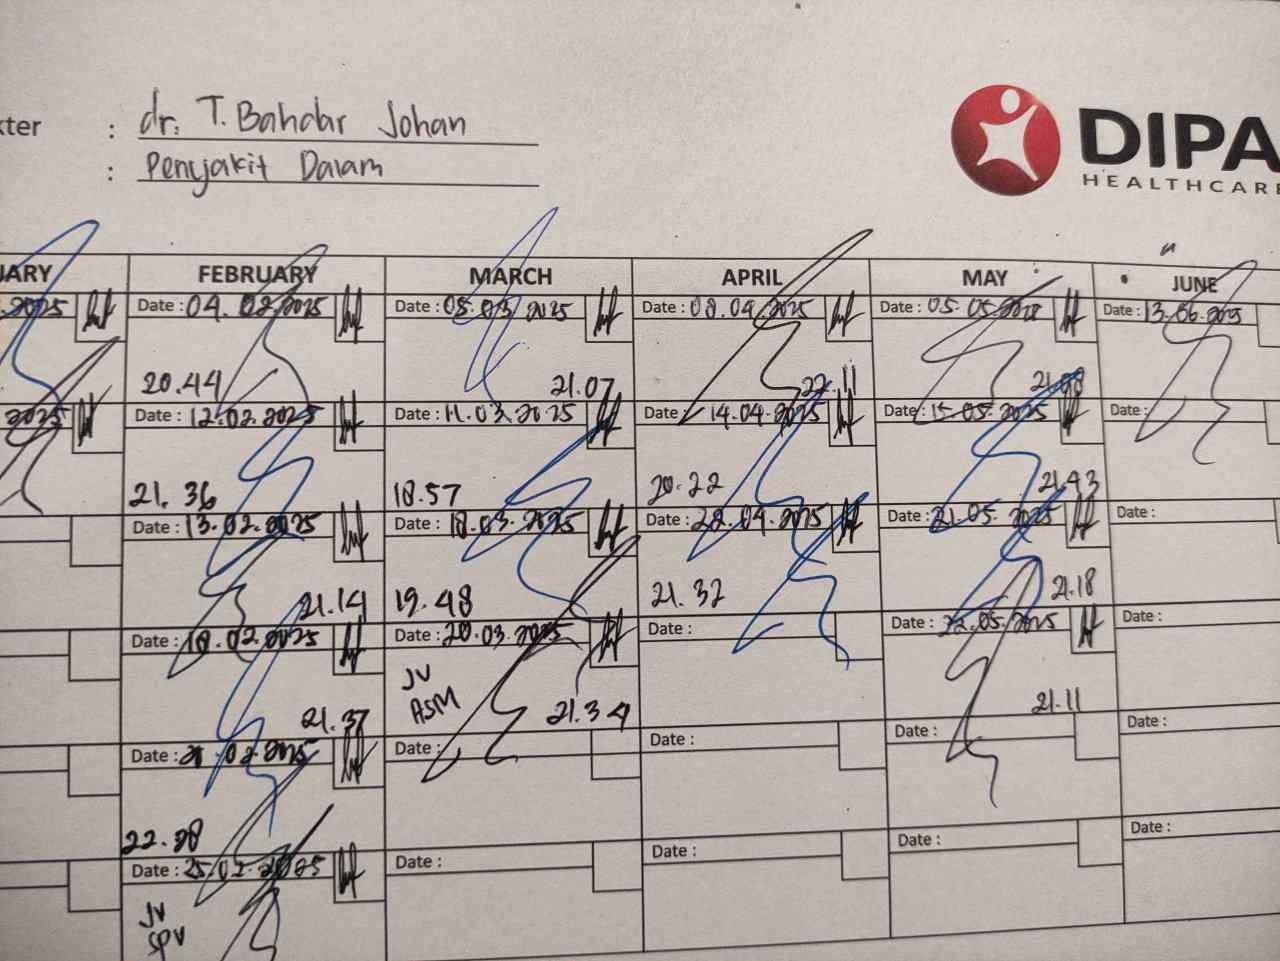 kter : dr. T. Bahdar Johan
: Penyakit Dalam
DIPA
HEALTHCARE
UARY FEBRUARY MARCH APRIL MAY JUNE
2025 Date : 04. 02. 2025 Date : 05. 03. 2025 Date : 08. 04. 2025 Date : 05. 05. 2025 Date : 13. 06. 2025
20.44 21.07 22.11
2025 Date : 12. 02. 2025 Date : 11. 03. 2025 Date : 14. 04. 2025 Date : 15. 05. 2025 Date :
21. 36 18.57 20.22 21.43
Date : 13. 02. 2025 Date : 18. 03. 2025 Date : 22. 04. 2025 Date : 21. 05. 2025 Date :
21.14 19.48 21.32 21.18
Date : 18. 02. 2025 Date : 20. 03. 2025 Date : Date : 22. 05. 2025 Date :
21.37 JV ASM 21.34 21.11
Date : 21. 02. 2025 Date : Date : Date : Date :
22.28
Date : 25. 02. 2025 Date : Date : Date : Date :
JV
SPV